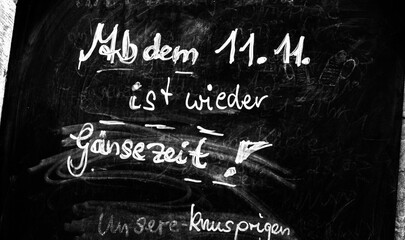 Ab dem 11.11.
ist wieder
Gänsezeit!
Unsere knusprigen